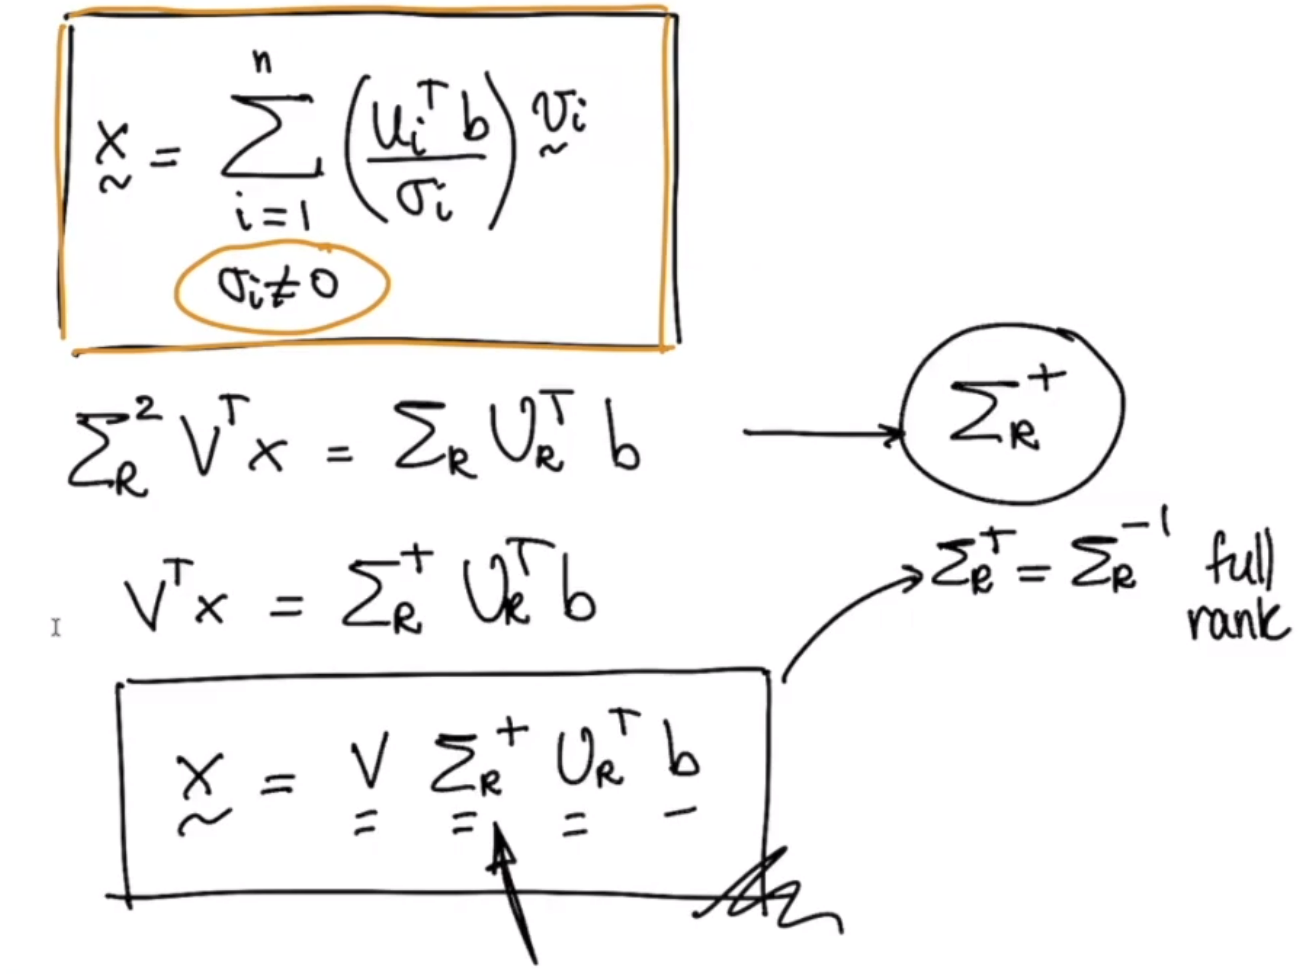 x = Σ_{i=1}^{n} (u_i^T b / σ_i) v_i
σ_i ≠ 0
Σ_R^2 V^T x = Σ_R U_R^T b → Σ_R^+
V^T x = Σ_R^+ U_R^T b
Σ_R^+ = Σ_R^{-1} full rank
x = V Σ_R^+ U_R^T b